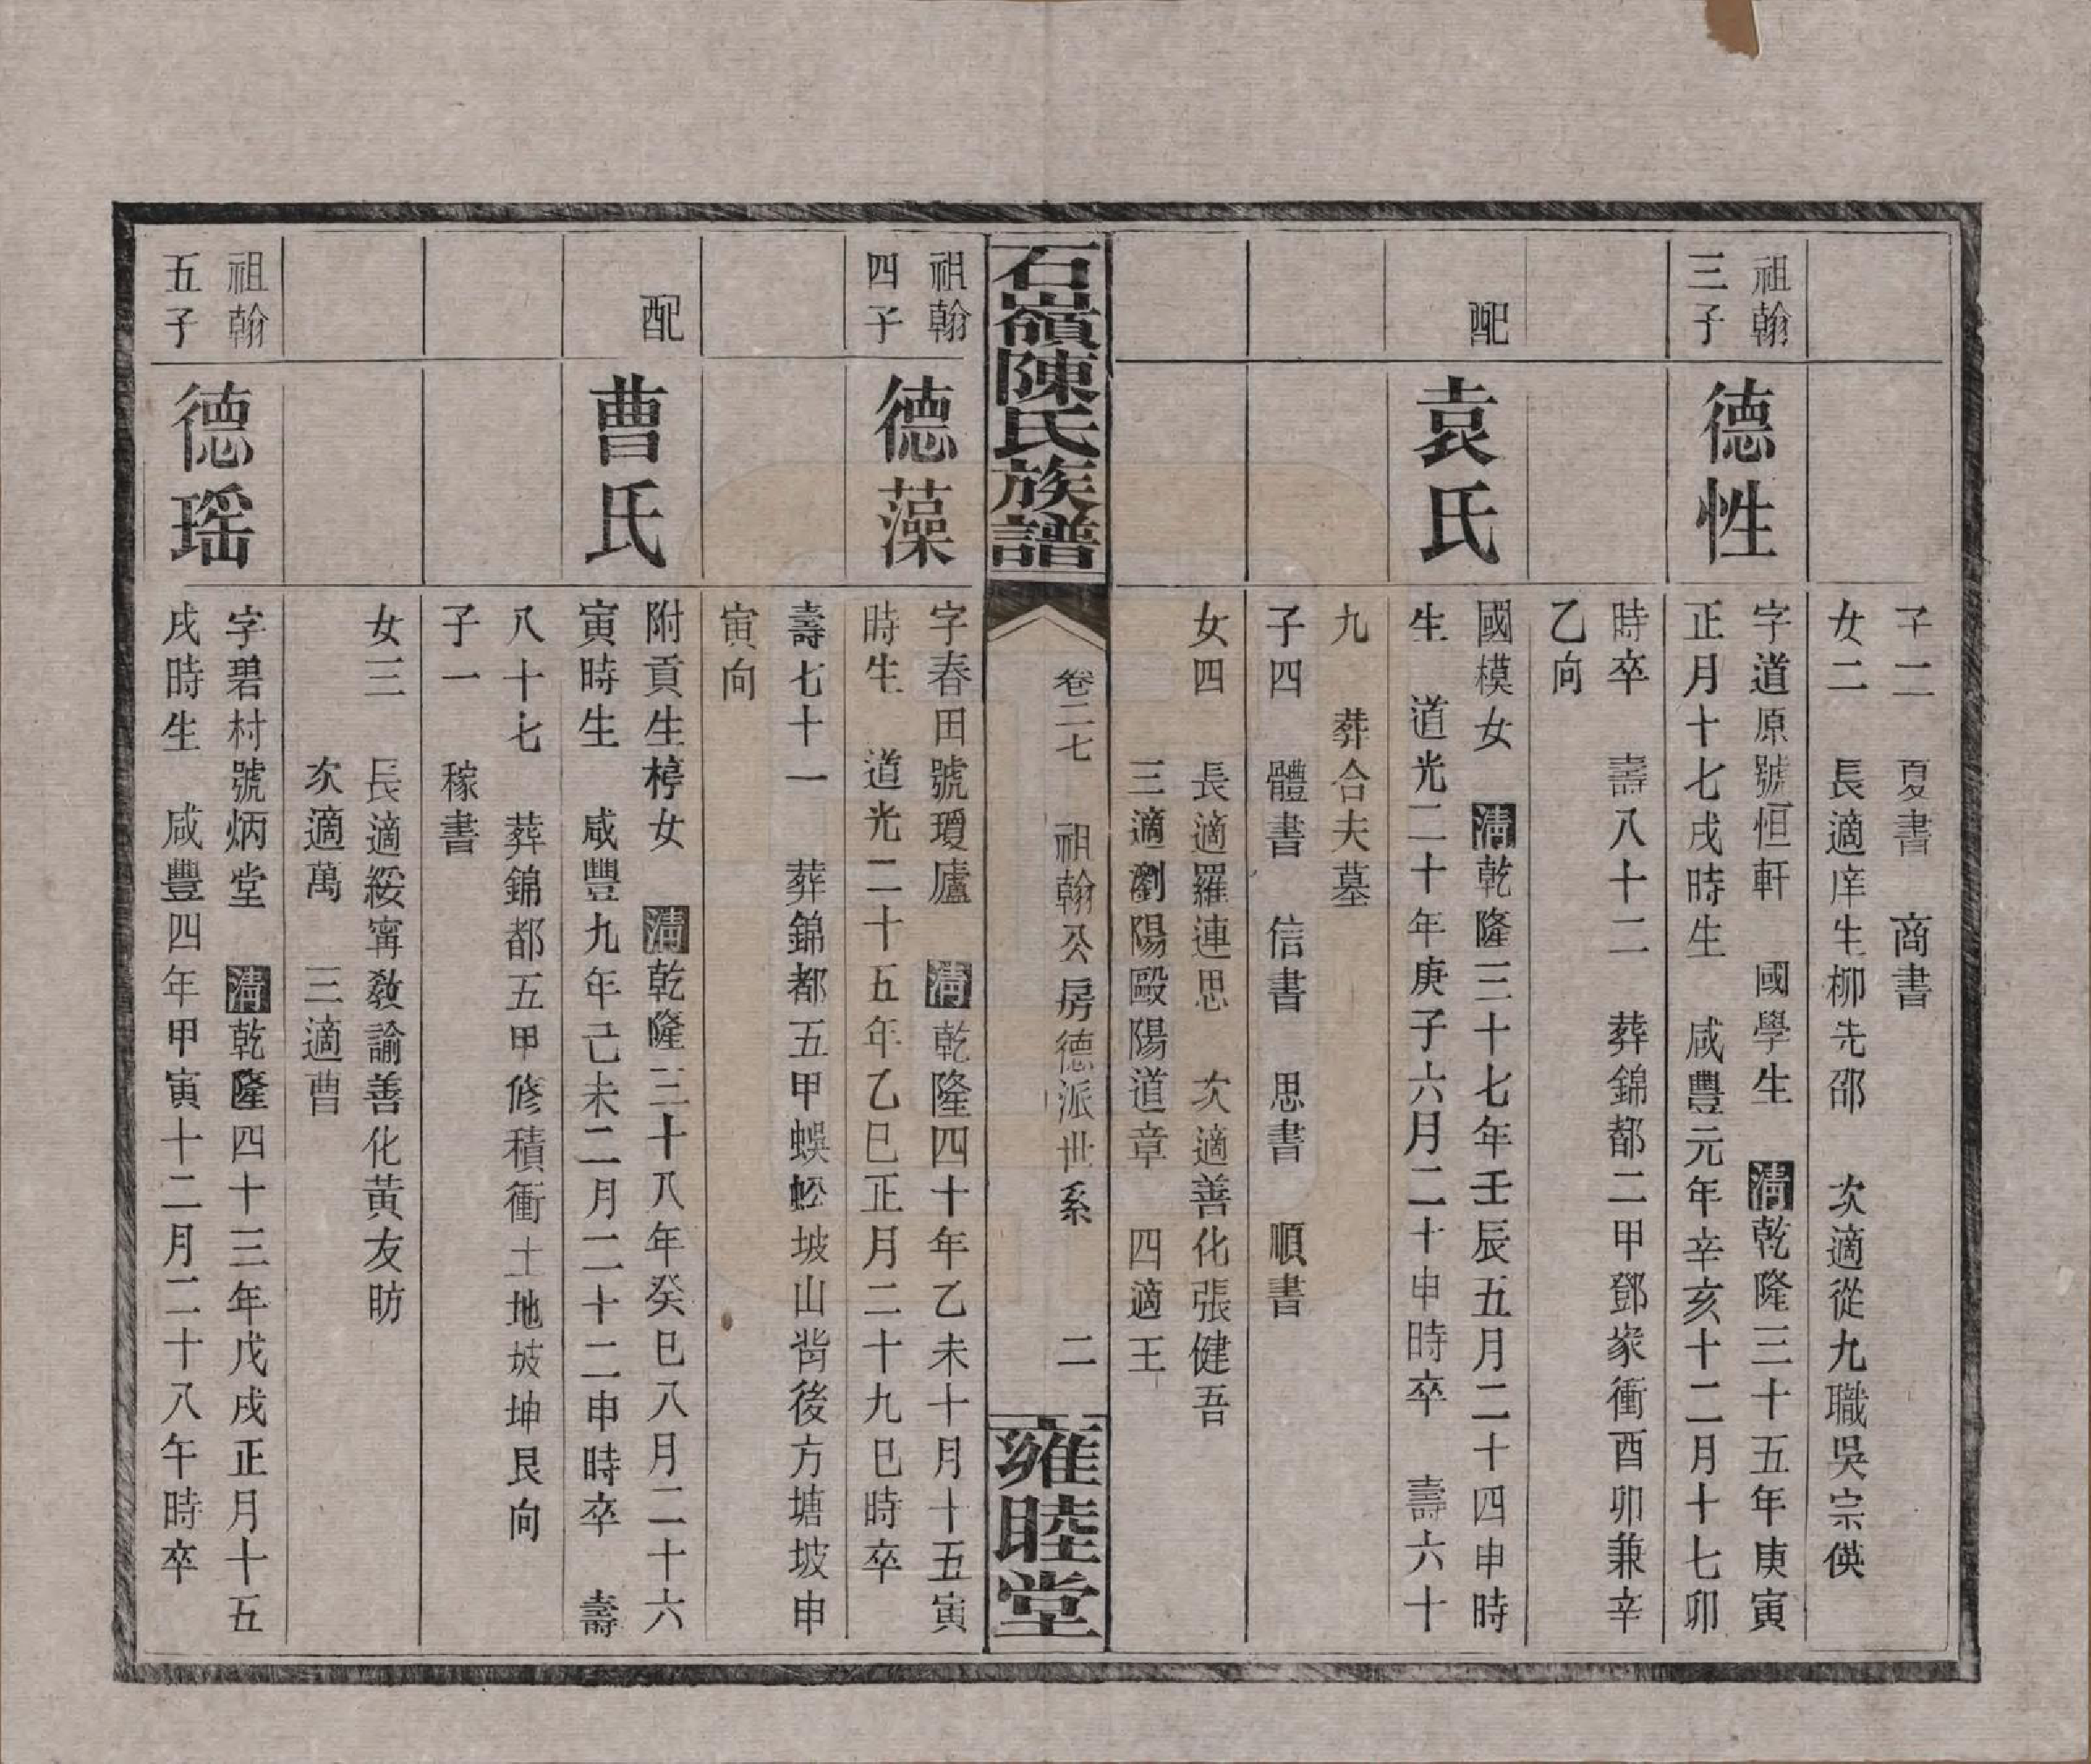 子二　夏書　商書
女二　長適庠生柳先邵　次適從九職吳宗偀
祖翰
三子
德性
字道原號恒軒　國學生　清乾隆三十五年庚寅
正月十七戌時生　咸豐元年辛亥十二月十七卯
時卒　壽八十二　葬錦都二甲鄧家衝酉卯兼辛
乙向
配
袁氏
國模女　清乾隆三十七年壬辰五月二十四申時
生　道光二十年庚子六月二十申時卒　壽六十
九　葬合夫墓
子四　體書　信書　思書　順書
女四　長適羅連思　次適善化張健吾
三適瀏陽歐陽道章　四適王
石嶺陳氏族譜
卷二七　祖翰公房德派世系　二
雍睦堂
祖翰
四子
德藻
字春田號瓊廬　清乾隆四十年乙未十月十五寅
時生　道光二十五年乙巳正月二十九巳時卒
壽七十一　葬錦都五甲蜈蚣坡山背後方塘坡申
寅向
配
曹氏
附貢生樗女　清乾隆三十八年癸巳八月二十六
寅時生　咸豐九年己未二月二十二申時卒　壽
八十七　葬錦都五甲修積衝土地坡坤艮向
子一　稼書
女三　長適綏甯教諭善化黃友昉
次適萬　三適曹
祖翰
五子
德瑶
字碧村號炳堂　清乾隆四十三年戊戌正月十五
戌時生　咸豐四年甲寅十二月二十八午時卒